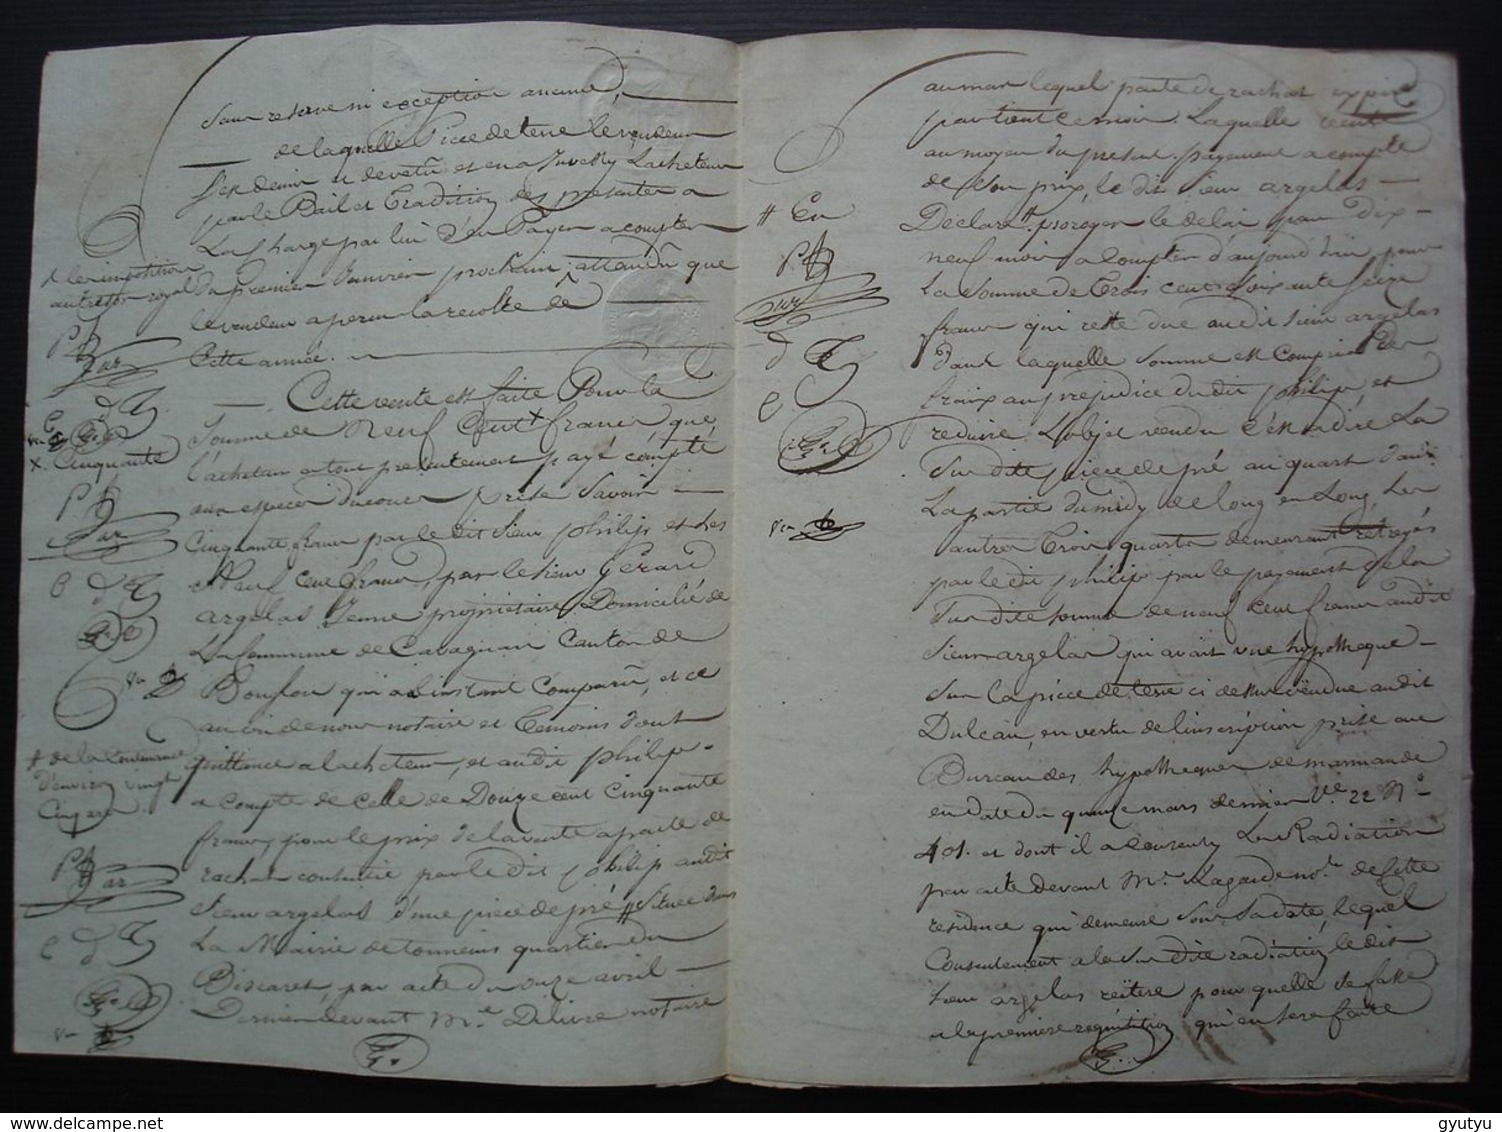 Sans reserve ni exception aucune,
de laquelle Piece de terre le vendeur
s'est demis et devetu et en a Investy L'acheteur
par le Bail et Tradition des presentes a
La Charge par lui d'en Payer a compter
# les imposition
au tresor royal
du premier Janvier prochain, attandu que
le vendeur a perçu la recolte de
Cette année.
Cette vente est faite Pour la
Somme de Neuf Cent x francs que
x. Cinquante
l'acheteur a tout presentement payé compté
aux especes du cours Prise Savoir
Cinquante francs par le dit Sieur philip et les
Neuf cent francs, par le sieur Gérard
argelas Jeune proprietaire Domicilié de
La Commune de Cavagnan Canton de
Bouglon qui a l'instant Comparu, et ce
au vu de nous notaire et temoins dont
# de la Contenance
d'environ vingt
Cinq ares
quittance a l'acheteur, et audit philip
a compte de Celle de Douze cent Cinquante
francs, pour le prix de la vente a pacte de
rachat consentie par le dit philip audit
Sieur argelas d'une piece de pré # Située dans
La Mairie de tonneins quartier du
Biscaret, par acte du onze avril
Dernier, devant Me. Delivre notaire
au mar lequel pacte de rachat expire
par tout ce mois. Laquelle vente
au moyen du present payement a compte
de Son prix, le dit Sieur argelas
# En
Declare # proroger le delai pour dix
neuf mois a Compter d'aujourd'hui, pour
La Somme de Trois Cent Soixante Seize
francs qui reste due audit Sieur argelas
Dans laquelle Somme est Comprise Les
fraix au prejudice du dit philip, et
reduire L'objet vendu C'est a dire La
Sus dite piece de pré au quart dans
La partie du midy de long en Long, Les
autres Trois quarts demeurant retroyés
par le dit philip par le payement de la
Sus dite Somme de neuf Cent francs audit
Sieur argelas qui avait une hypotheque
Sur La piece de terre ci dessus vendue audit
Dulcau, en vertu de l'inscription prise au
Bureau des hypotheques de marmande
en date du quinze mars dernier Ve. 22 No.
401. et dont il a consenty La Radiation
par acte devant Me. Lagarde nore. de Cette
residence qui demeure Sous Sa date, lequel
Consentement a la Sus dite radiation le dit
Sieur argelas reitere pour quelle Se fasse
a la premiere requisition qu'en sera faite
gyutyu
delcampe.net